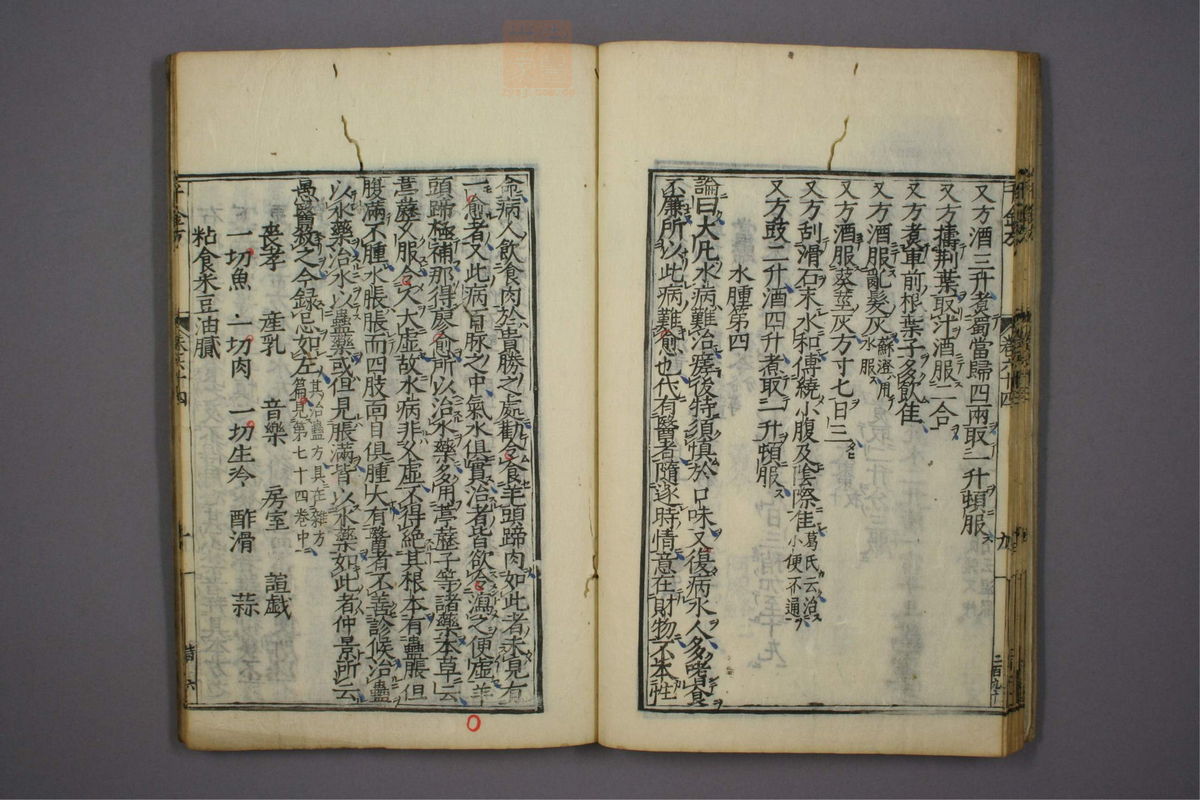 又方酒三升煮蜀當歸四兩取一升頓服
又方擣荆葉取汁酒服二合
又方煮車前根葉子多飲佳
又方酒服亂髮灰蘇澄用水服
又方酒服葵莖灰方寸七日三
又方刮滑石末水和傅繞小腹及陰際佳葛氏云治小便不通
又方豉二升酒四升煮取一升頓服
水腫第四
論曰大凡水病難治瘥後特須慎於口味又復病水人多嗜食
不廉所以此病難愈也代有醫者隨逐時情意在財物不本性
命病人飲食肉於貴勝之處勸令食羊頭蹄肉如此者未見有
一愈者又此病百脉之中氣水俱實治者皆欲令瀉之便虛羊
頭蹄極補那得瘳愈所以治水藥多用葶藶子等諸藥本草云
葶藶久服令人大虛故水病非久虛不得絶其根本有蠱脹但
腹滿不腫水脹脹而四肢面目俱腫大有醫者不善診候治蠱
以水藥治水以蠱藥或但見脹滿皆以水藥如此者仲景所云
愚醫殺之今錄忌如左其治蠱方具在雜方篇見第七十四卷中
喪孝 産乳 音樂 房室 諠戯
一切魚 一切肉 一切生冷 酢滑 蒜
粘食米豆油膩
千金方
卷六十四
九
千金方
卷六十四
十